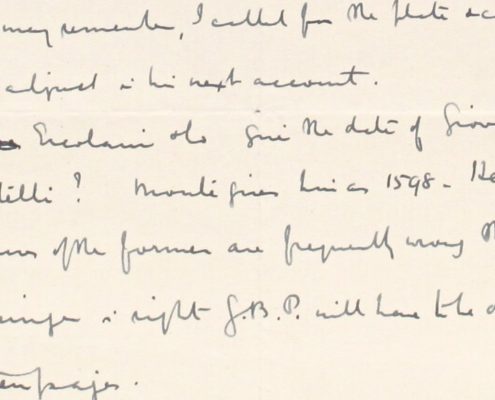 may remember, I called for the plate
adjust in his next account.
Ercolani also give the date of Giov
telli? Monti gives him as 1598 - He
of the former are frequently wrong
is right G.B.P. will have to be
pages.